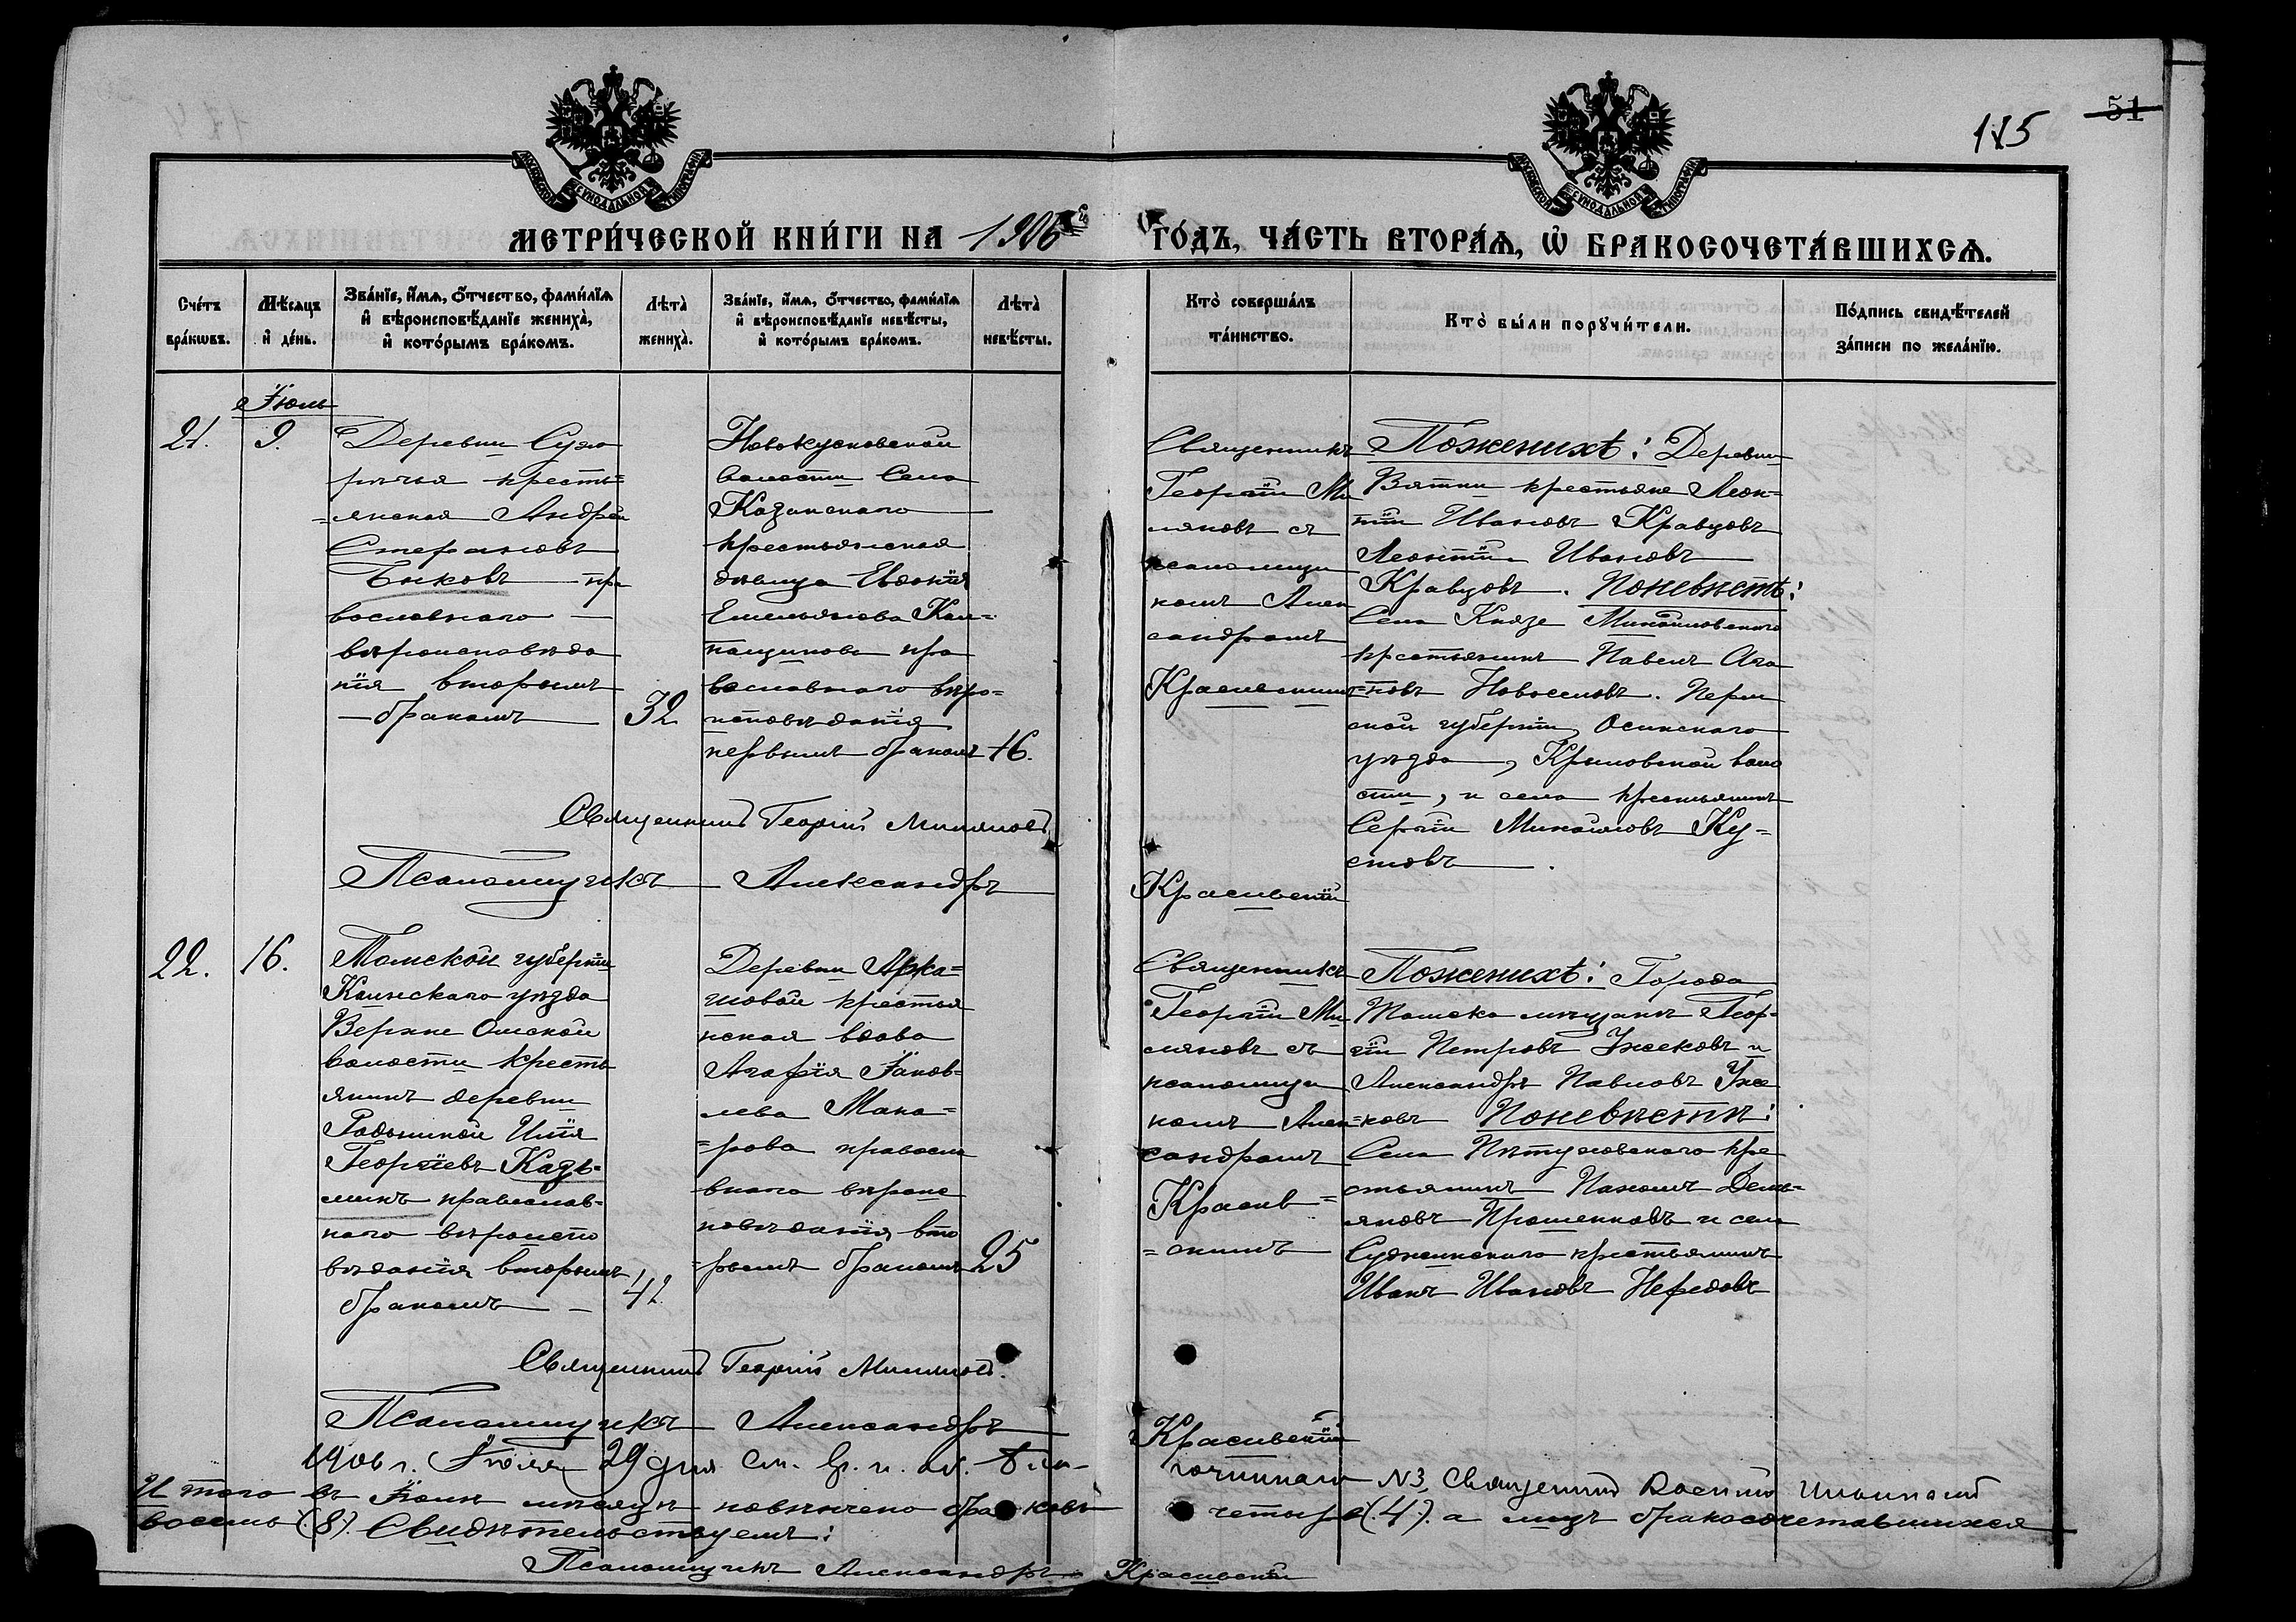 185
51
МЕТРИ́ЧЕСКОЙ КНИ́ГИ НА 1906 ГО́ДЪ, ЧА́СТЬ ВТОРА́Ѧ, Ѡ҆ БРАКОСОЧЕТА́ВШИХСѦ.
Сче́тъ бра́кѡвъ.
Мѣ́сѧцъ и҆ де́нь.
Зва́нїе, и҆́мѧ, ѻ҆́тчество, фами́лїѧ
и҆ вѣроисповѣ́данїе жениха̀,
и҆ кото́рымъ бра́комъ.
Лѣта̀ жениха̀.
Зва́нїе, и҆́мѧ, ѻ҆́тчество, фами́лїѧ
и҆ вѣроисповѣ́данїе невѣ́сты,
и҆ кото́рымъ бра́комъ.
Лѣта̀ невѣ́сты.
Кто̀ соверша́лъ
та́инство.
Кто̀ бы́ли порꙋчи́тели.
По́дпись свидѣ́телей
за́писи по жела́нїю.
Іюль
21.
9.
Деревни Судо
рѣчья кресть=
Андрей
Стефановъ
Быковъ пра
вославнаго
вѣроисповѣда
нія вторымъ
бракомъ
32
Новокусковской
волости Села
Казанскаго
крестьянская
дѣвица Евдокія
Емельянова
пра
вославнаго вѣро=
исповѣданія
первымъ бракомъ
16.
Священникъ
Георгій Ми
ляновъ съ
псаломщи
комъ Алек
сандромъ
Красивскимъ
Поженихѣ: Деревни
Вятки крестьяне Леон=
тій Ивановъ Кравцовъ
Леонтій Ивановъ
Кравцовъ. Поневѣстѣ:
Села Князе Михайловскаго
крестьянинъ Павелъ Ага
повъ Новоселовъ. Перм
ской губерніи, Осинскаго
уѣзда, Крыловской воло
сти, и села крестьянинъ
Сергій Михайловъ Ку=
стовъ
Священникъ Георгій Миляновъ
Псаломщикъ Александръ Красивскій
22.
16.
Томской губерніи
Каинскаго уѣзда
Верхне Омской
волости кресть
янинъ деревни
Илія
Георгіевъ Кадь=
минъ православ=
наго вѣроиспо
вѣданія вторымъ
бракомъ
42
Деревни Арка=
шовой крестья
нская вдова
Агафія Іаков=
лева Мака=
=рова правосла
внаго вѣроис
повѣданія вто
=рымъ бракомъ
25
Священникъ
Георгій Ми
ляновъ съ
псаломщи
комъ Алек
сандромъ
Красив=
=скимъ
Поженихѣ: Города
Томска мѣщане Геор=
гій Петровъ Ужековъ и
Александръ Павловъ Уже
=ковъ Поневѣстѣ:
Села Пѣтуховскаго кре
стьянинъ Пахомъ Демь=
яновъ Прошенковъ и села
Судженскаго крестьянинъ
Иванъ Ивановъ Нефедовъ
Священникъ Георгій Миляновъ.
Псаломщикъ Александръ Красивскій
1906 г. Іюля 29 дня
№3, Священникъ
Итого въ Іюлѣ мѣсяцѣ повѣнчано браковъ четыре (4). а лицъ бракосочетавшихся
восемь (8). Свидѣтельствуемъ:
Псаломщикъ Александръ Красивскій